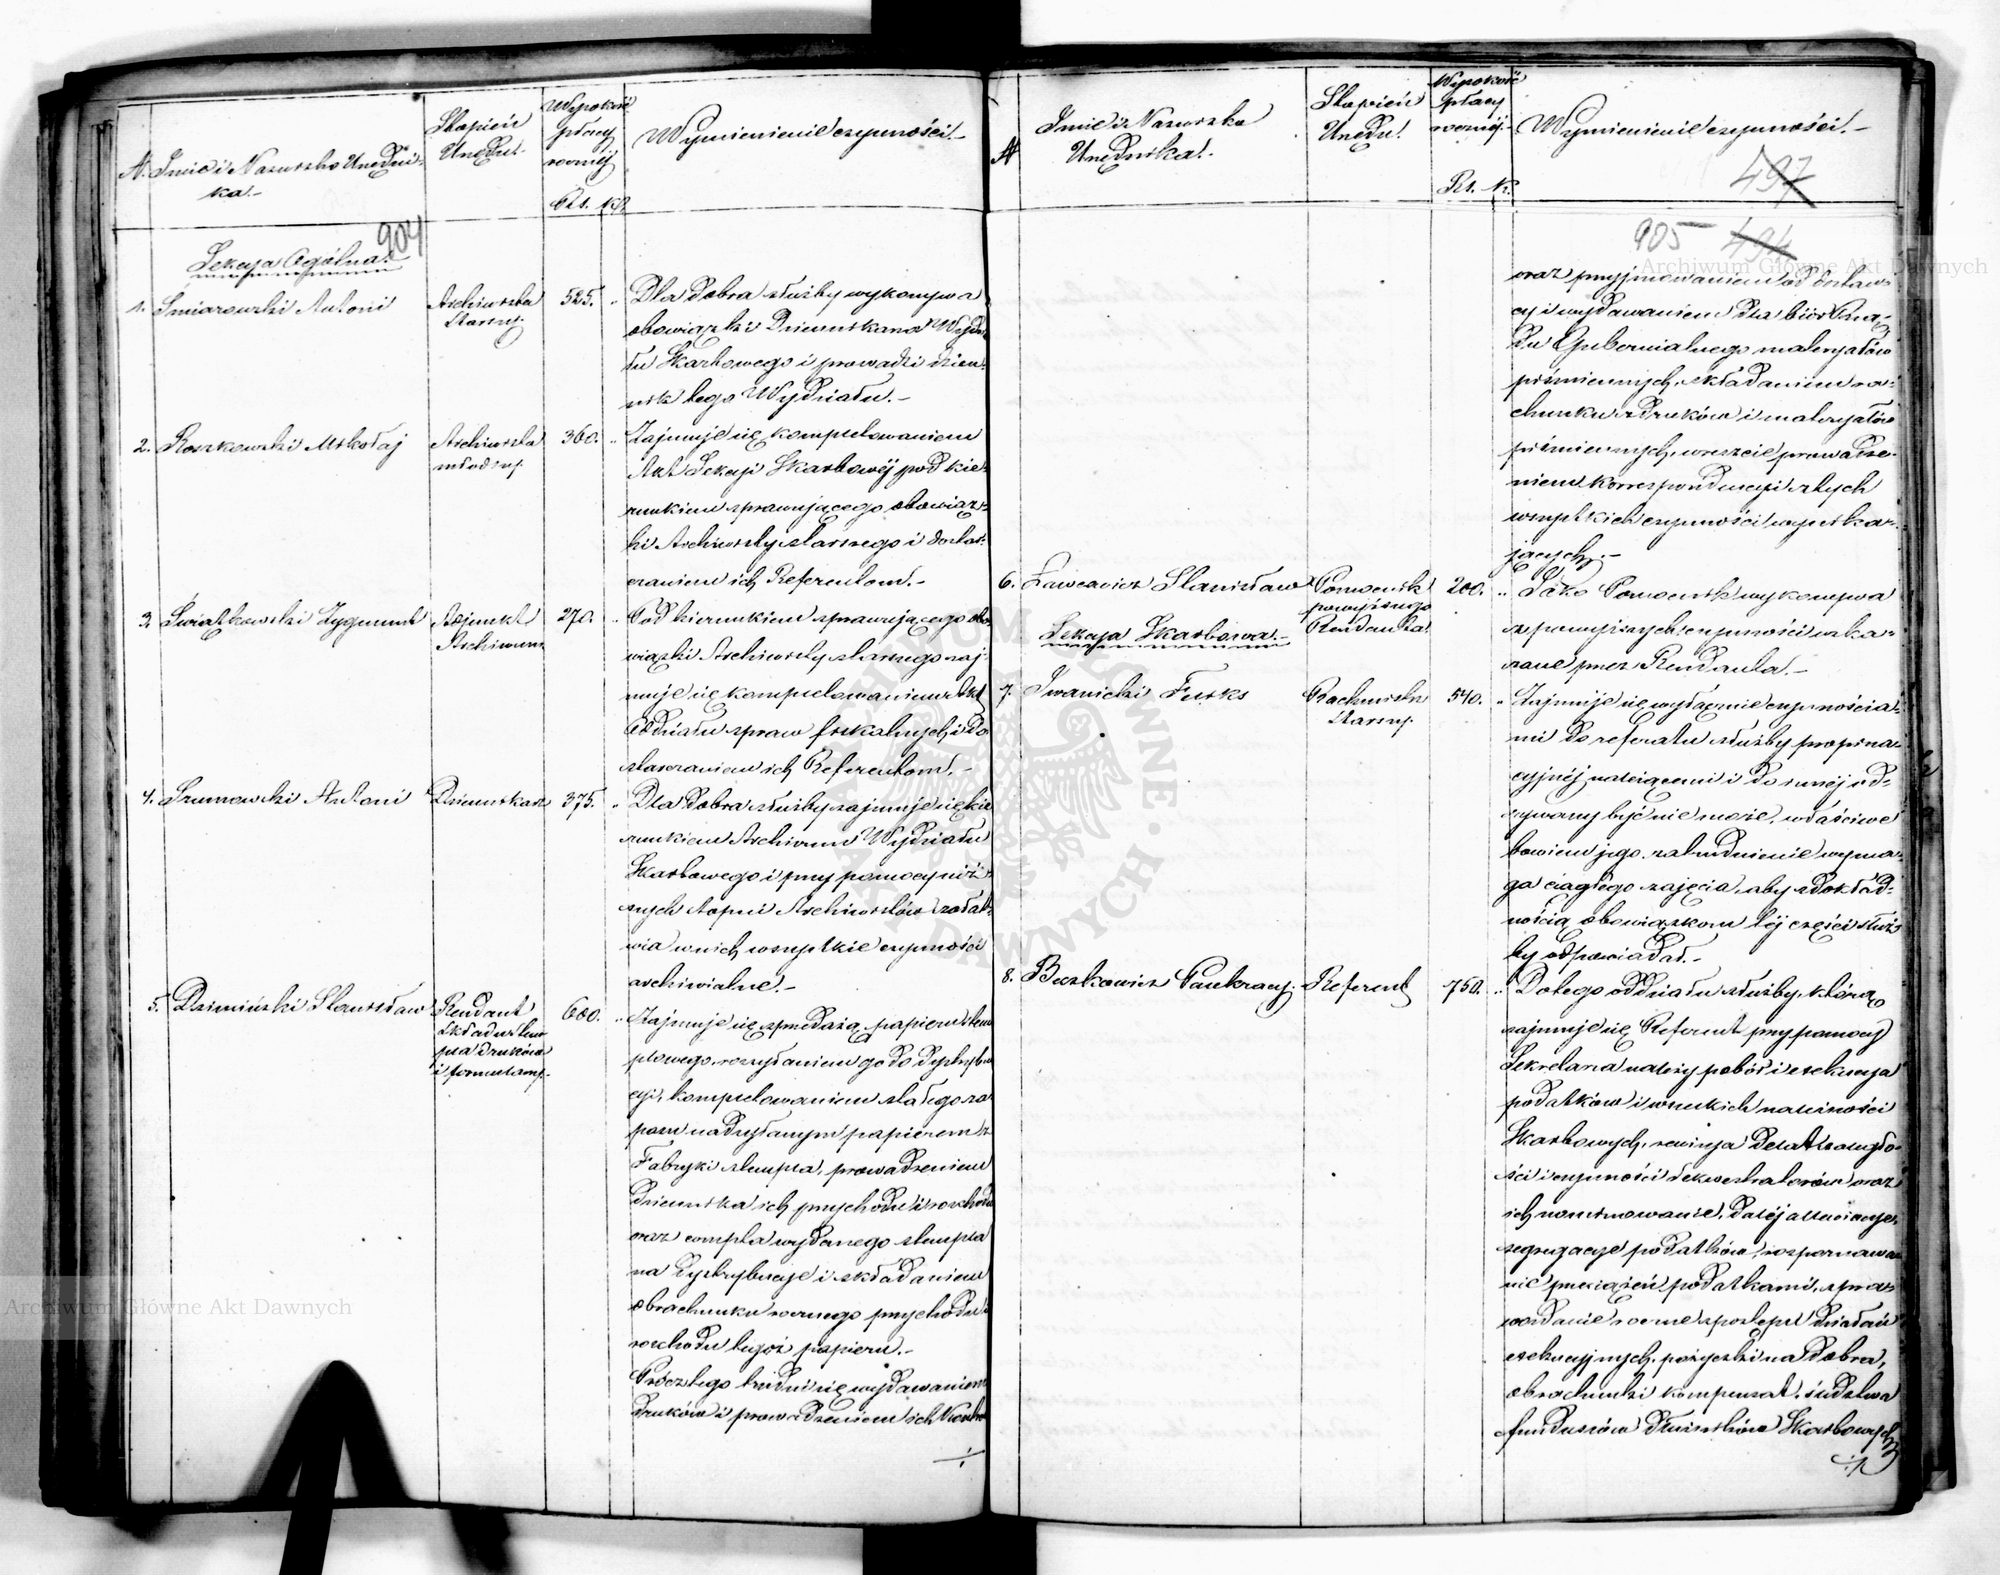 N. Imie i Nazwisko Urzędni-
ka.-
Stopień
Urzędu.-
Wysokość
płacy
rocznéj
Rs. kp.
Wymienienie czynności.-
904
Sekcya Ogólna.
1. Smiarowski Antoni
Archiwista
starszy.
525. "
Dla dobra służby wykonywa
obowiązki Dziennikarza Wydzia
łu Skarbowego i prowadzi dzien-
nik tego Wydziału.-
2. Roszkowski Mikołaj
Archiwista
młodszy.
360. "
Zajmuje się kompletowaniem
Akt Sekcyi Skarbowéj pod kie-
runkiem sprawującego obowiąz-
ki Archiwisty starszego i dostar-
czaniem ich Referentom.-
3. Świątkowski Zygmunt
Adjunkt
Archiwum
270. "
Pod kierunkiem sprawującego obo
wiązki Archiwisty starszego zaj-
muje się kompletowaniem Akt
Oddziału spraw fiskalnych i do
starczaniem ich Referentom.-
4. Szumowski Antoni
Dziennikarz
375. "
Dla dobra służby zajmuje się kie
runkiem Archiwum Wydziału
Skarbowego i przy pomocy niż-
szych stopni Archiwistów załat-
wia w nich wszystkie czynności
archiwialne.-
5. Dzimiński Stanisław
Rendant
składu stem
pla druków
i formularzy.-
600. "
Zajmuje się sprzedażą papieru stem
plowego, rozsyłaniem go do dystrybu
cyi, kompletowaniem stałego za
pasu nadsyłanym papierem z
Fabryki stempla, prowadzeniem
Dziennika ich przychodu i rozchodu
oraz compta wydanego stempla
na Dystrybucye i składaniem
obrachunku rocznego przychodu i
rozchodu tegoż papieru.-
Prócz tego trudni się wydawaniem
druków i prowadzeniem ich Kontro
N
Imie i Nazwisko
Urzędnika.-
Stopień
Urzędu.
Wysokość
płacy
rocznéj.-
Rs. k.
Wymienienie czynności.-
497
905 494
oraz przyjmowaniem od dostaw-
cy i wydawaniem dla biór Rzą-
du Gubernialnego materyałów
piśmiennych, składaniem ra-
chunku z druków i materyałów
piśmiennych, wreszcie prowadze-
niem korrespondencyi z tych
wszystkich czynności wynika-
jących.-
6. Ławcewicz Stanisław
Pomocnik
powyższego
Rendanta
200. "
Jako Pomocnik wykonywa
z powyższych czynności wska-
zane przez Rendanta.-
Sekcya Skarbowa.-
7. Iwanicki Feliks
Rachmistrz
starszy.
540. "
Zajmuje się wyłącznie czynnościa-
mi do referatu służby propina-
cyjnéj należącemi i do innéj od-
rywany być nie może, właściwe
bowiem jego zatrudnienie wyma-
ga ciągłego zajęcia, aby z dokład-
nością obowiązkom téj części służ
by odpowiadał.-
8. Buzkowicz Pankracy.
Referent
750. "
Do tego oddziału służby, którą
zajmuje się Referent przy pomocy
Sekretarza należy pobór i exekucya
podatków i wszelkich należności
Skarbowych, rewizya Delat zaległo-
ści i czynności sekwestratorów oraz
ich nominowanie, daléj allewiacye,
segregacye podatków, rozpoznawa
nie przeciążeń podatkami, spra-
wozdanie roczne z postępu działań
exekucyjnych, pożyczki na dobra,
obrachunki kompensat, śledztwa
funduszów dłużników Skarbowych
Archiwum Główne Akt Dawnych
Archiwum Główne Akt Dawnych
ARCHIWUM GŁÓWNE AKT DAWNYCH